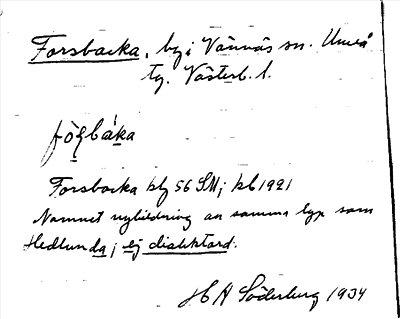 Forsbacka, by i Vännäs sn. Umeå
tg. Västerb. l.
Forsbacka blg 56 SM; kb 1921
Namnet nybildning av samma typ som
Hedlunda; ej dialektord.
H A Söderberg 1934